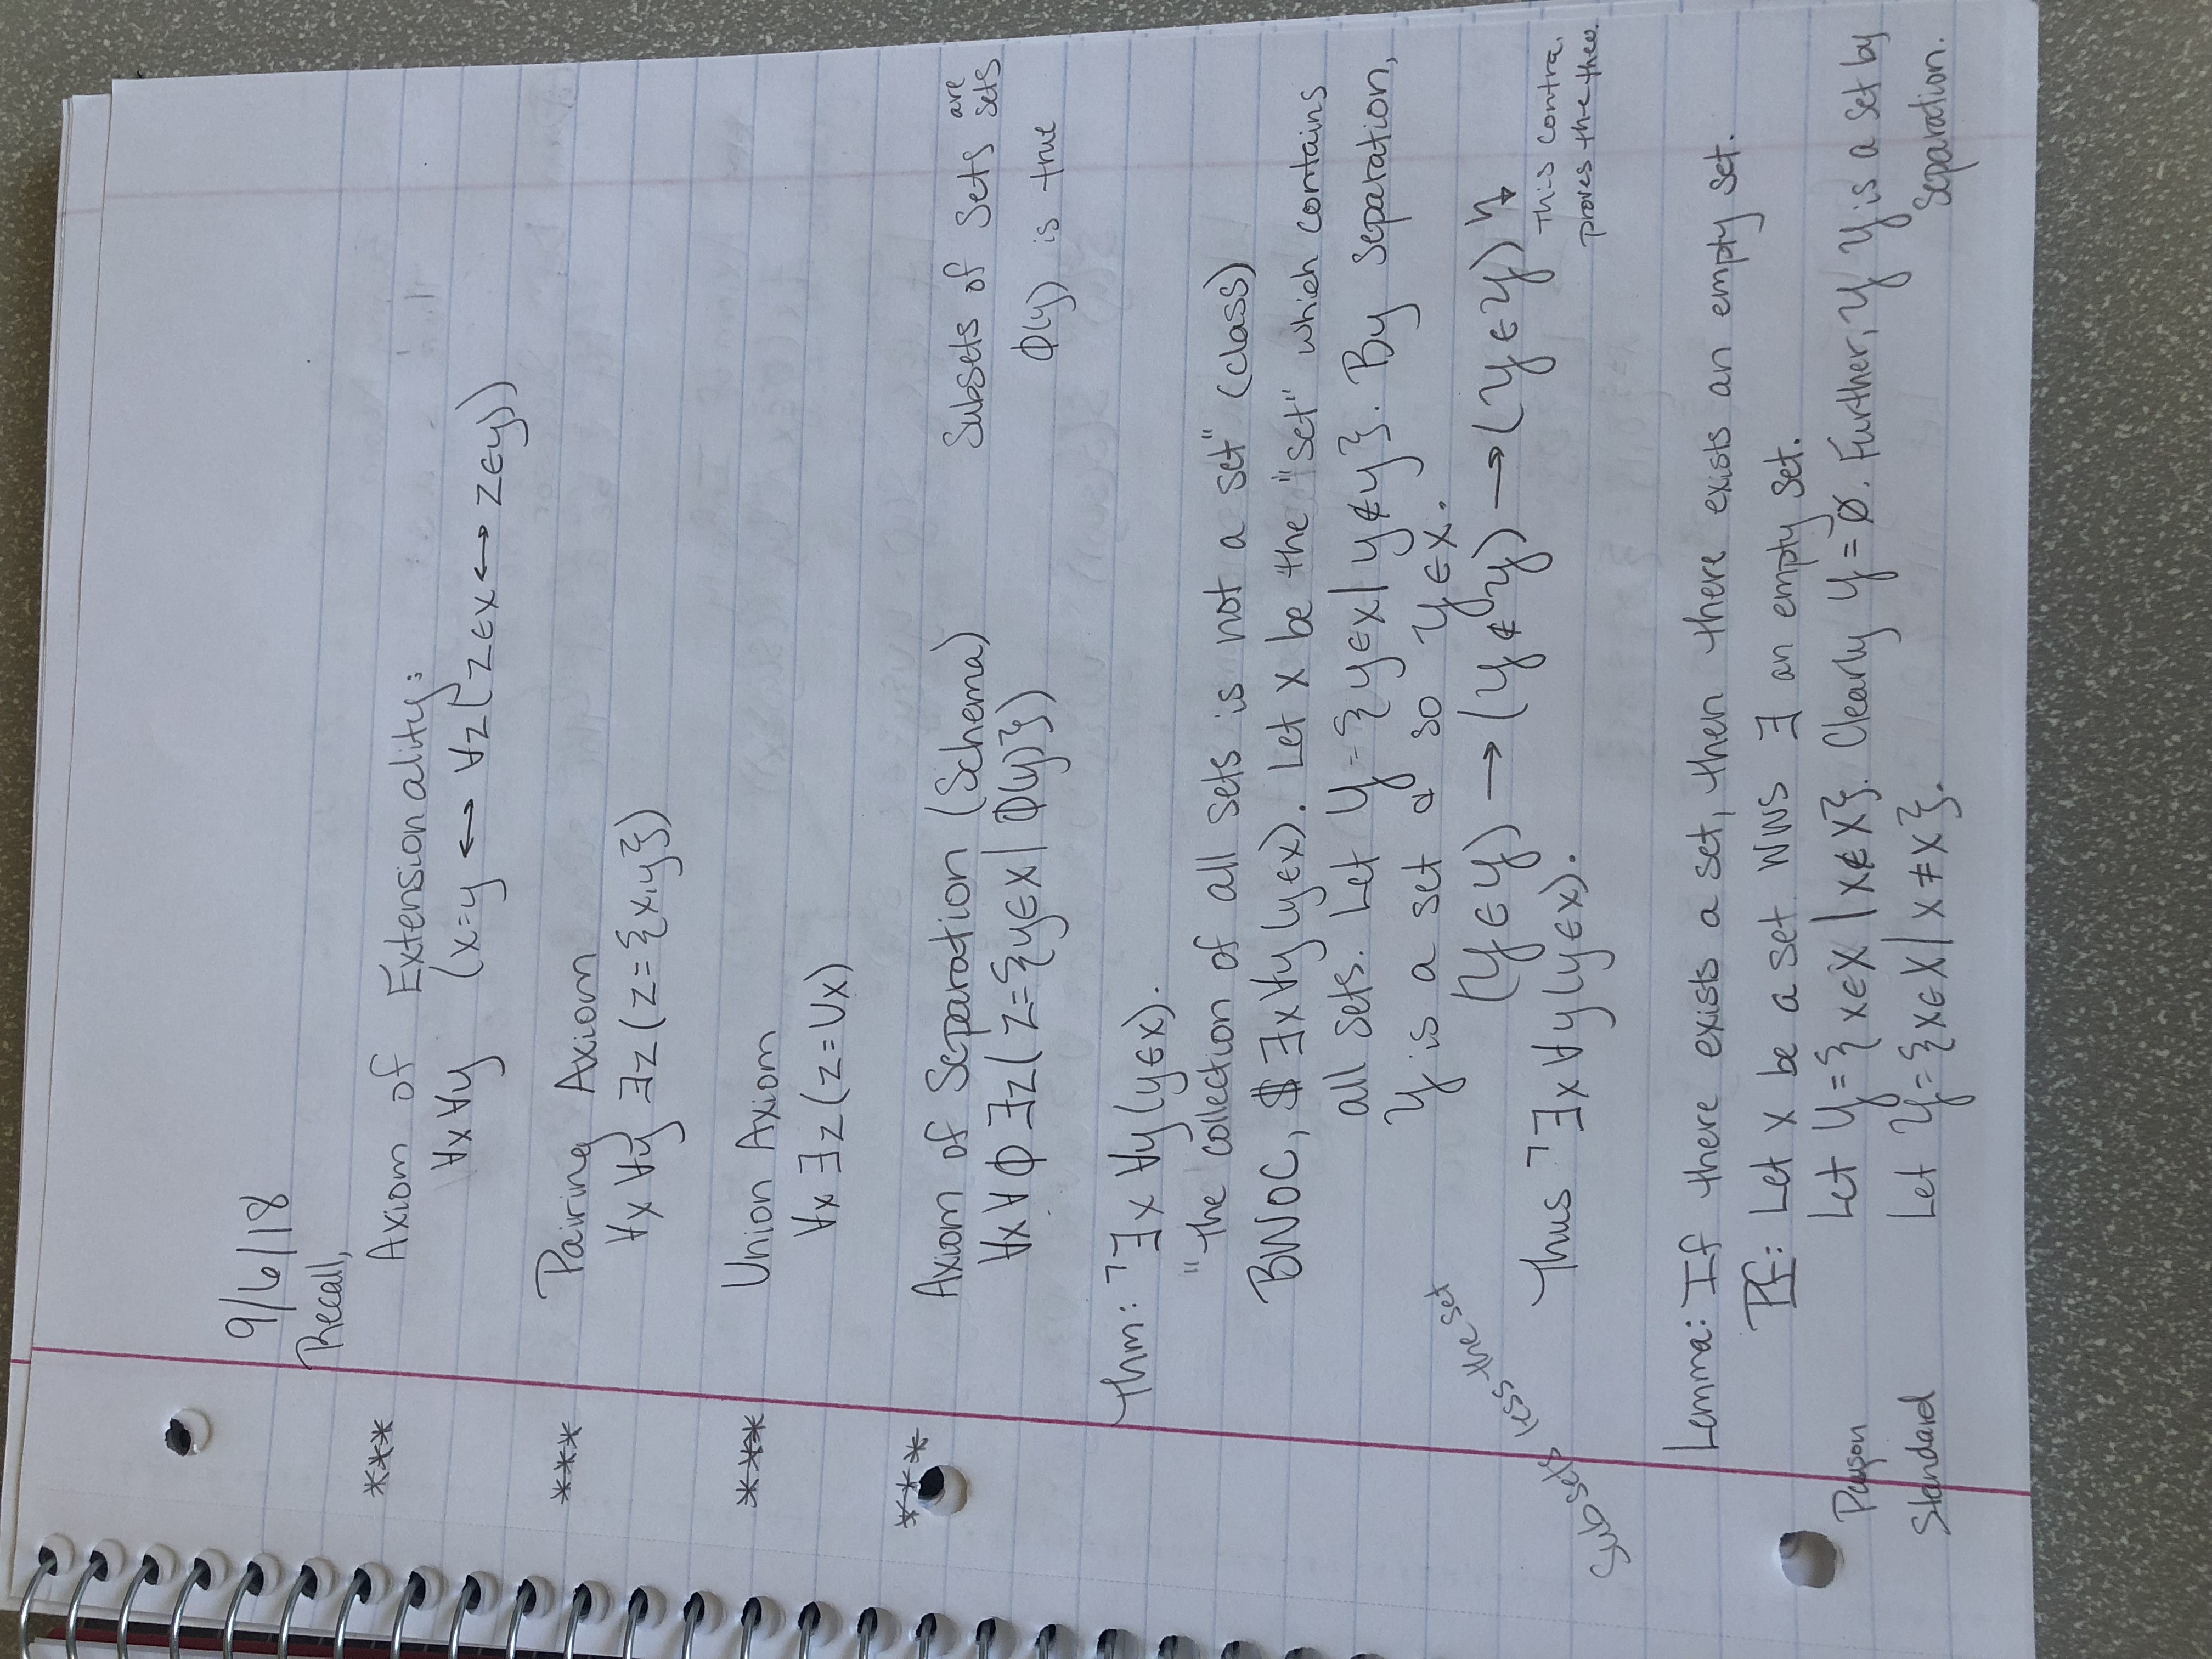 9/6/18
Recall,
*** Axiom of Extensionality:
∀x ∀y (x=y ↔ ∀z(z∈x ↔ z∈y))
*** Pairing Axiom
∀x ∀y ∃z (z={x,y})
*** Union Axiom
∀x ∃z (z=∪x)
*** Axiom of Separation (Schema) Subsets of Sets are sets
∀x ∀ϕ ∃z( z={y∈x | ϕ(y)}) ϕ(y) is true
Thm: ¬∃x ∀y (y∈x).
"The collection of all sets is not a set" (class)
BWOC, $ ∃x ∀y (y∈x). Let x be the "set" which contains
all sets. Let Y={y∈x | y∉y}. By Separation,
Y is a set & so Y∈x.
(Y∈Y) → (Y∉Y) → (Y∈Y) ↯
This contra.
proves the theo.
Thus ¬∃x ∀y (y∈x).
Subsets less the set
Lemma: If there exists a set, then there exists an empty set.
Pf: Let X be a set. WWS ∃ an empty set.
Payson Let Y={x∈X | x∉X}. Clearly Y=∅. Further, Y Y is a set by
Separation.
Standard Let Y={x∈X | x≠x}.